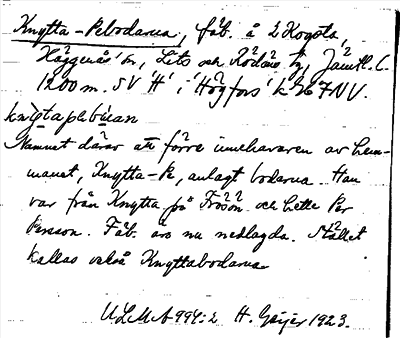 Knytta-Pebodarna, fäb. å 2 Kogsta,
Häggenås sn, Lits och Rödöns tg, Jämtl. l.
1200 m. SV 'H' i 'Högfors' k 7 NV.
knỳtapebúan
Namnet därav att förre innehavaren av hem-
manet, Knytta-Pe, anlagt bodarna. Han
var från Knytta på Frösön och hette Per
Persson. Fäb. äro nu nedlagda. Stället
kallas också Knyttabodarna
ULMA 994:2 H. Geijer 1923.